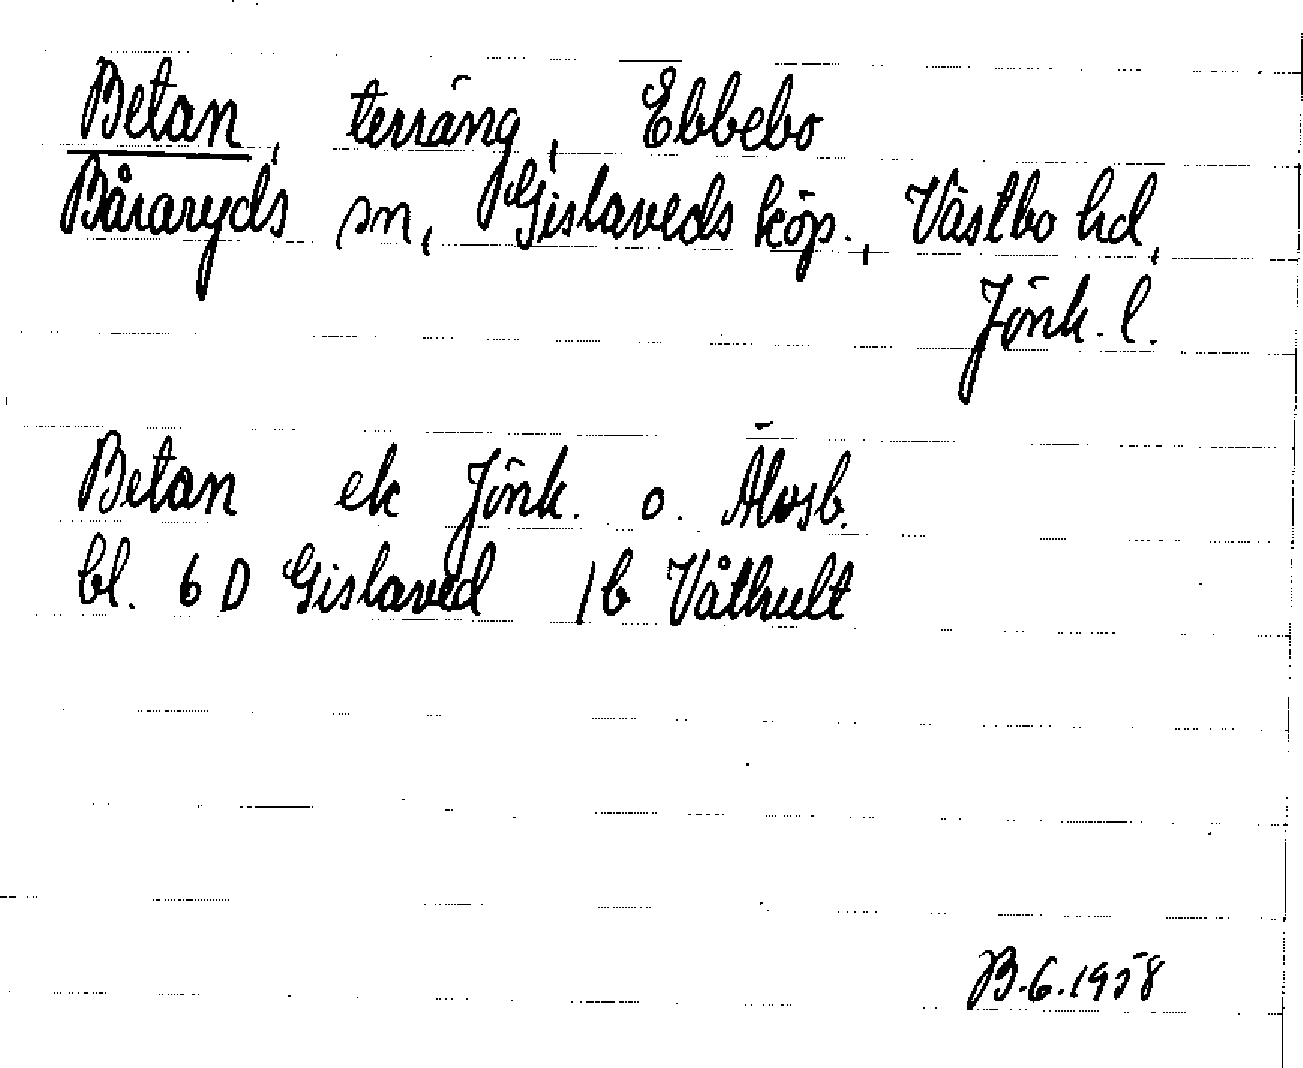 Betan, terräng, Ebbebo
Båraryds sn, Gislaveds köp., Västbo hd,
Jönk. l.
Betan ek Jönk. o. Älvsb.
bl. 6 D Gislaved 1b Våthult
B.6.1958